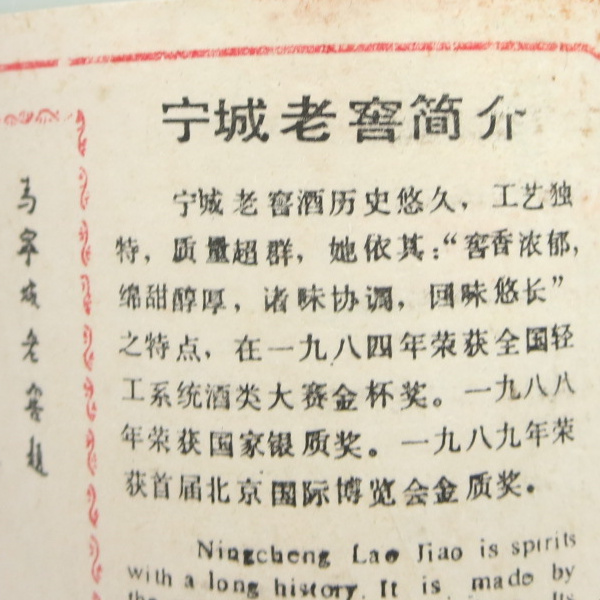 宁城老窖简介
宁城老窖酒历史悠久，工艺独
特，质量超群，她依其：“窖香浓郁，
绵甜醇厚，诸味协调，回味悠长”
之特点，在一九八四年荣获全国轻
工系统酒类大赛金杯奖。一九八八
年荣获国家银质奖。一九八九年荣
获首届北京国际博览会金质奖。
Ningcheng Lao Jiao is spirits
with a long history. It is made by
the
Its
为宁城老窖题